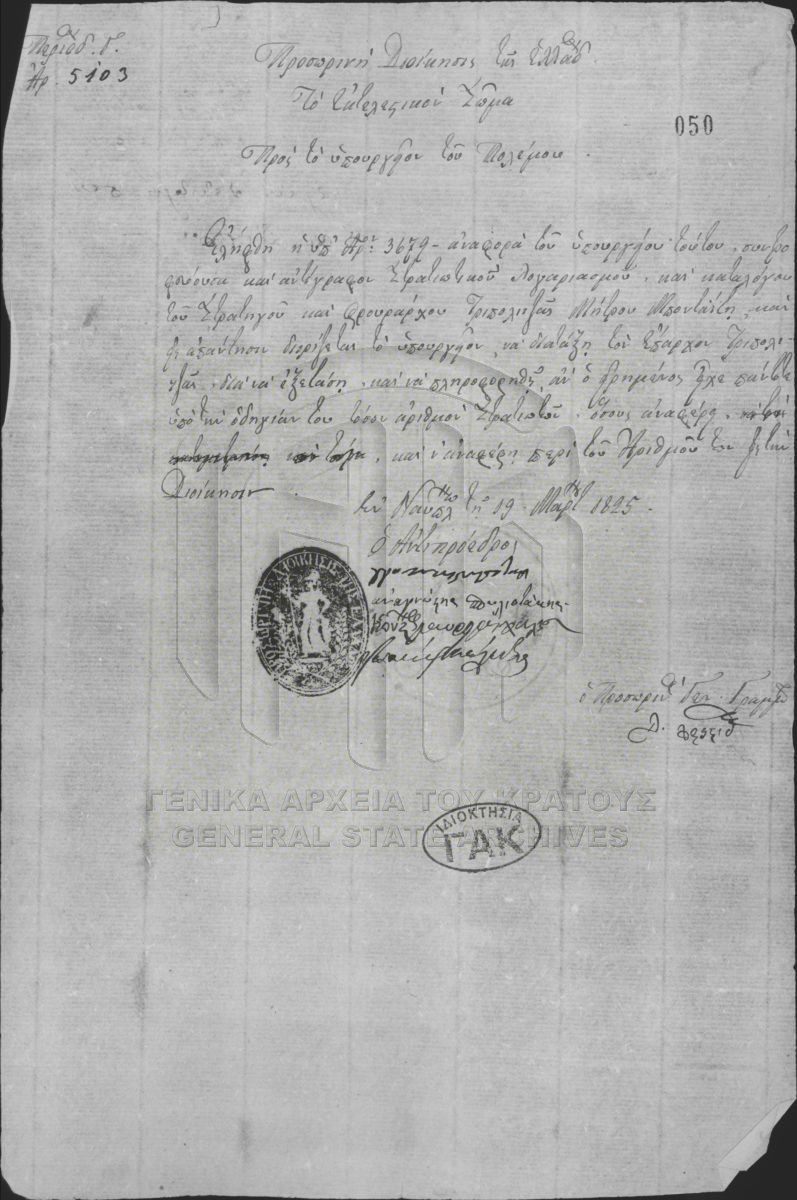 Περίοδ. γ΄.
Ἀρ. 5103
Προσωρινὴ Διοίκησις τῆς Ἑλλάδ.
Τὸ Ἐκτελεστικὸν Σῶμα
050
Πρὸς τὸ ὑπουργεῖον τοῦ Πολέμου.
Ἐλήφθη ἡ ὑπ' Ἀρ: 3679 ἀναφορὰ τοῦ ὑπουργείου τούτου, συνεπι
φέρουσα καὶ ἀντίγραφον Στρατιωτικοῦ Λογαριασμοῦ, καὶ καταλόγου
τοῦ Στρατηγοῦ καὶ φρουράρχου Τριπολιτζᾶς Μήτρου
εἰς ἀπάντησιν διορίζεται τὸ ὑπουργεῖον, νὰ διατάξῃ τὸν ἔπαρχον Τριπολι-
τζᾶς, διὰ νὰ ἐξετάσῃ, καὶ νὰ πληροφορηθῇ, ἂν ὁ εἰρημένος εἶχε πάντοτε
ὑπὸ τὴν ὁδηγίαν του τόσον ἀριθμὸν Στρατιωτῶν, ὅσους ἀναφέρει,
καὶ ν' ἀναφέρῃ περὶ τοῦ Ἀριθμοῦ των εἰς τὴν
Διοίκησιν.
ἐν Ναυπλίῳ τῇ 19 Μαρτίου 1825.
ὁ Ἀντιπρόεδρος
ΠΡΟΣΩΡΙΝΗ ΔΙΟΙΚΗΣΙΣ ΤΗΣ ΕΛΛΑΔΟΣ
ὁ Προσωριν. Γεν. Γραμμ
ΓΕΝΙΚΑ ΑΡΧΕΙΑ ΤΟΥ ΚΡΑΤΟΥΣ
GENERAL STATE ARCHIVES
ΙΔΙΟΚΤΗΣΙΑ
ΓΑΚ